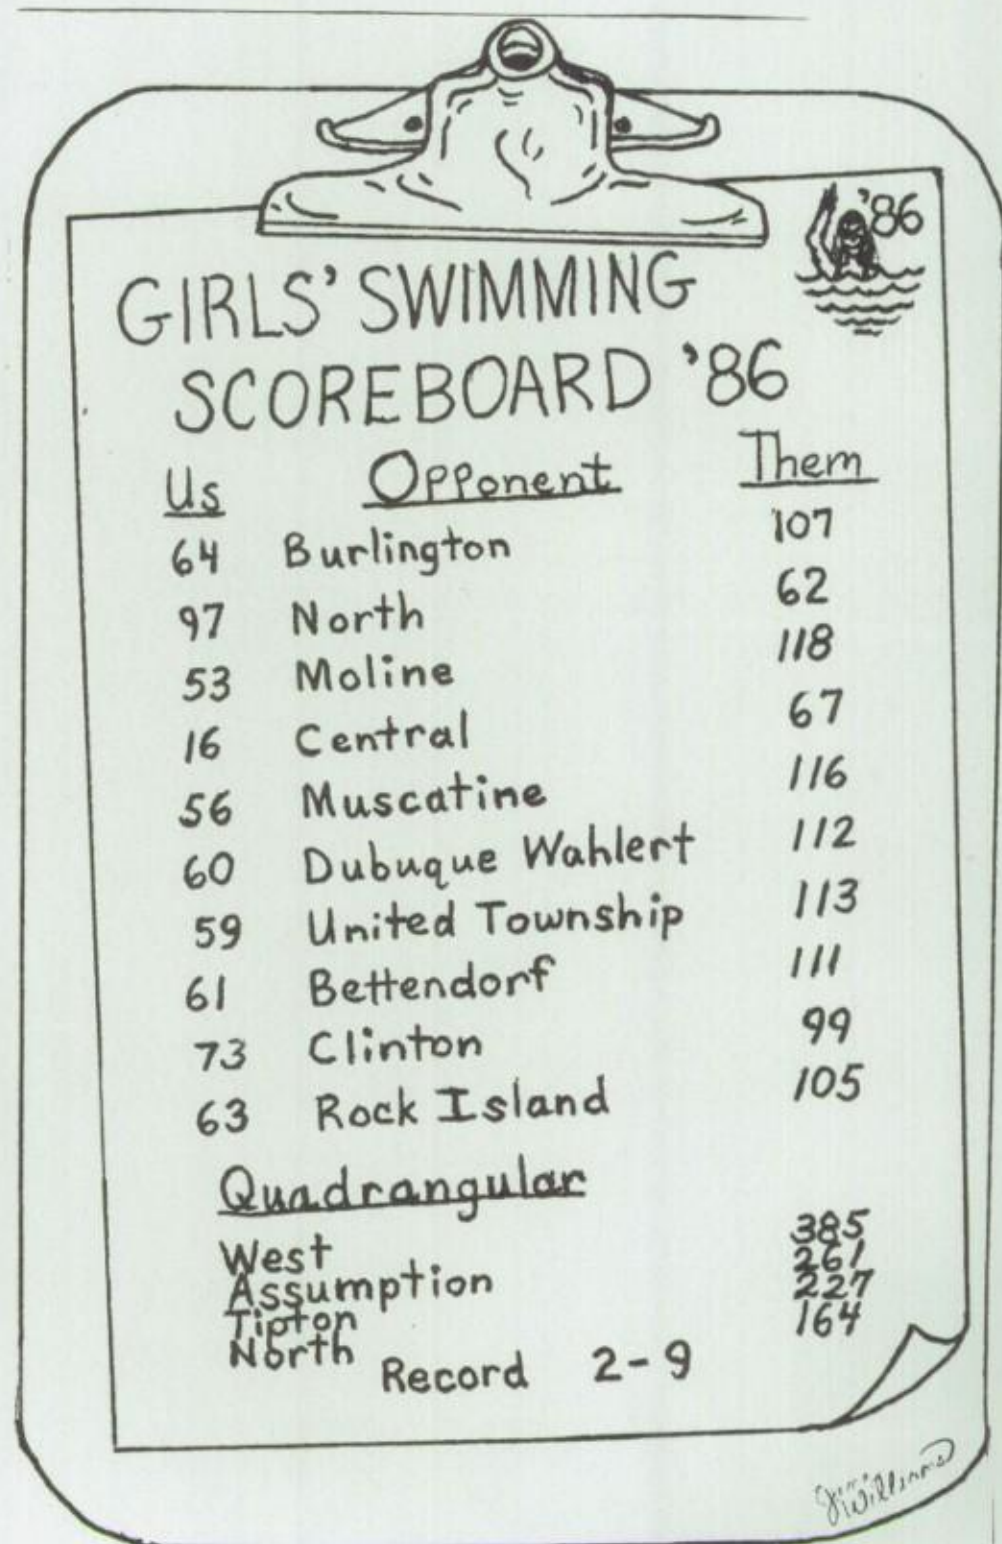 '86
GIRLS' SWIMMING
SCOREBOARD '86
Us Opponent Them
64 Burlington 107
97 North 62
53 Moline 118
16 Central 67
56 Muscatine 116
60 Dubuque Wahlert 112
59 United Township 113
61 Bettendorf 111
73 Clinton 99
63 Rock Island 105
Quadrangular
West 385
Assumption 261
Tipton 227
North 164
Record 2-9
Williams